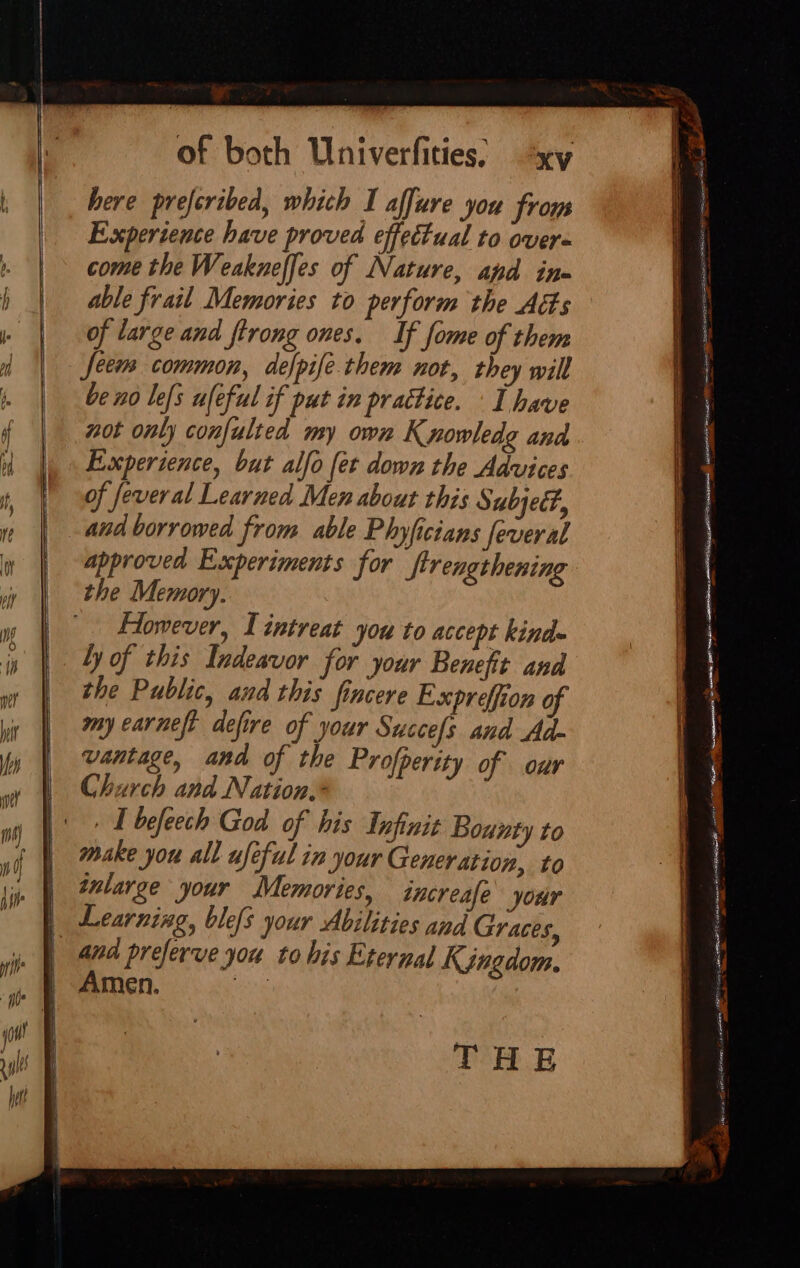 of both Univerſities. xv
here preſcribed, which I aſſure you from
Experience have proved effectual to over-
come the Weakneſſes of Nature, and in-
able frail Memories to perform the Acts
of large and ſtrong ones. If ſome of them
ſeem common, deſpiſe them not, they will
be no leſs uſeful if put in practice. I have
not only conſulted my own Knowledg and
Experience, but alſo ſet down the Advices
of ſeveral Learned Men about this Subject,
and borrowed from able Phyſicians ſeveral
approved Experiments for ſtrengthening
the Memory.
However, I intreat you to accept kind-
ly of this Indeavor for your Benefit and
the Public, and this ſincere Expreſſion of
my earneſt deſire of your Succeſs and Ad-
vantage, and of the Proſperity of our
Church and Nation.
I beſeech God of his Infinit Bounty to
make you all uſeful in your Generation, to
inlarge your Memories, increaſe your
Learning, bleſs your Abilities and Graces,
and preſerve you to his Eternal Kingdom.
Amen.
THE